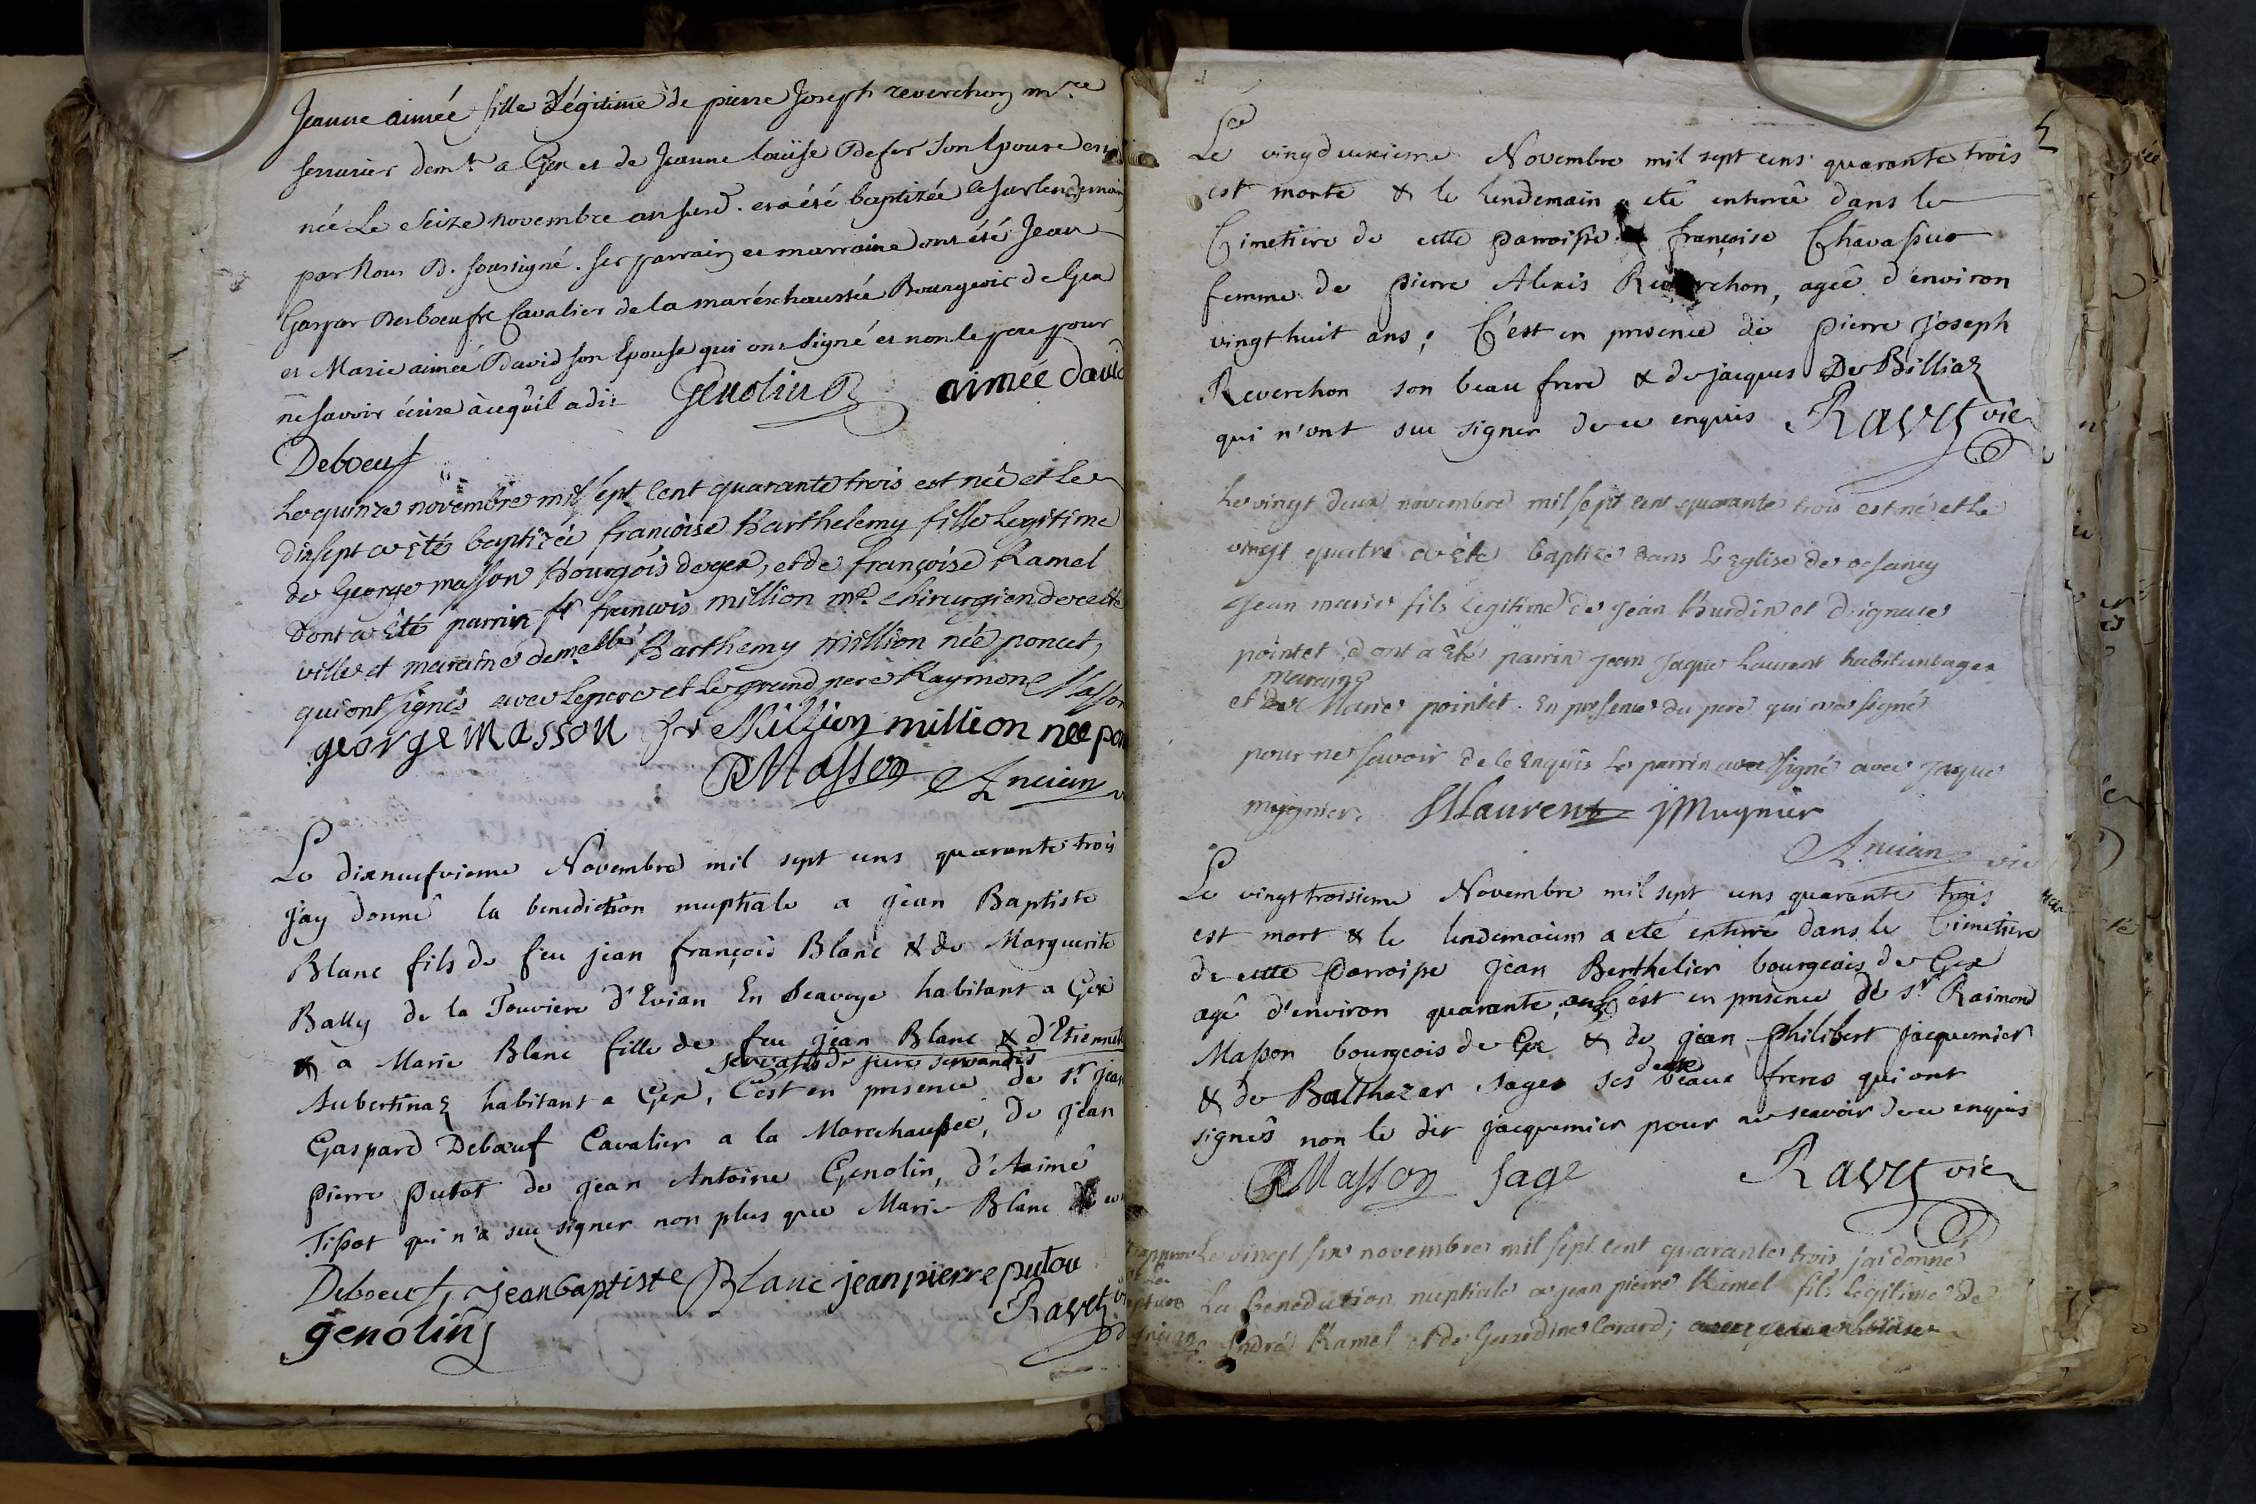 Jeanne aimée fille Légitime de pierre Joseph reverchon m.re
serrurier dem.t a Gex et de Jeanne louïse Defer son Epouse
née Le Seize novembre an susd. et a été baptizée le surlendemain
par Nous B. soussigné. ses parrain et marraine ont été Jean
Gaspar Desboeufs Cavalier de la maréschaussée Bourgeois de Gex
et Marie aimée David son Epouse qui ont signé et non le pere pour
ne savoir écrire à ce qu'il a dit Genolin B aimée david
Deboeuf
Le quinze novembre mil sept Cent quarante trois est née et Le
dix sept a Eté baptizée françoise Barthelemy fille Legitime
de George masson Bourgois de gex, et de françoise Ramel
dont a Eté parrin sr françois million me. chirurgien de cette
ville et maraine demelle Barthemy million née poncet
qui ont signés avec le pere et Le grand pere Raymon Masson
george Masson fr Million million nee pon
RMasson Ancian
Le dixneufvieme Novembre mil sept cens quarante trois
j'ay donné la benediction nuptiale a jean Baptiste
Blanc fils de feu jean françois Blanc & de Marguerite
Bally de la Touviere d'Evian En Seavoye habitant a Gex
& a Marie Blanc fille de feu jean Blanc & d'Etiennette
servatis de jure servandis
Aubertinaz habitant a Gex, C'est en presence de sr. jean
Gaspard Debœuf Cavalier a la Marechaussée, de jean
pierre putot de jean Antoine Genolin, d'Aimé
Tissot qui n'a sçu signer non plus que Marie Blanc
Deboeuf, jean baptiste Blanc jean pierre putou
genolin Ravet
Le vingdeuxieme Novembre mil sept cens quarante trois
est morte & le lendemain a eté enterrée dans le
Cimetiere de cette parroisse françoise Chavassue
femme de pierre Alexis Reverchon, agée d'environ
vingt huit ans; C'est en presence de pierre joseph
Reverchon son beau frere & de jacques De Billiaz
qui n'ont sçu signer de ce enquis Ravet vic
Le vingt deux novembre mil sept cent quarante trois est né et Le
vingt quatre a Eté baptizé dans L'Eglise de vesancy
jean marie fils legitime de jean Burdin et d'ignace
pointet, dont a Eté parrin jean jaque Laurent habitant a gex
maraine
et Marie pointet. En presence du pere qui n'a signé
pour ne savoir de ce Enquis Le parrin a signé avec jaque
mugnier. JJLaurent jMugnier
Ancian vic
Le vingttroisieme Novembre mil sept cens quarante trois
est mort & le lendemain a eté enterré dans le Cimetiere
de cette parroisse jean Berthelier bourgeois de Gex
agé d'environ quarante ans, C'est en presence de sr. Raimond
Masson bourgeois de Gex & de jean philibert jacquemier
deux
& de Balthazar sage ses beaux freres qui ont
signés non le dit jacquemier pour ne sçavoir de ce enquis
RMasson sage Ravet vic
Le vingt six novembre mil sept cent quarante trois j'ai donné
La benediction nuptiale a jean pierre Ramel fils Legitime de
André Ramel et de